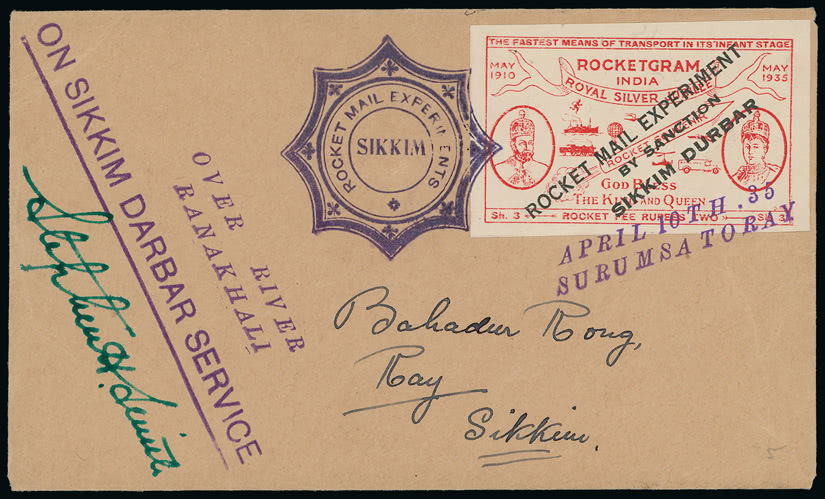 ON SIKKIM DARBAR SERVICE
Stephen H. Smith
OVER RIVER
RANAKHALI
ROCKET MAIL EXPERIMENTS
SIKKIM
THE FASTEST MEANS OF TRANSPORT IN ITS INFANT STAGE
MAY 1910
ROCKETGRAM
INDIA
MAY 1935
ROYAL SILVER
ROCKET
GOD BLESS
THE KING AND QUEEN
Sh. 3
ROCKET FEE RUPEES TWO
Sh. 3
ROCKET MAIL EXPERIMENT
BY SANCTION
SIKKIM DURBAR
APRIL 10TH.35
SURUMSA TO RAY
Bahadur Rong,
Ray
Sikkim.
5